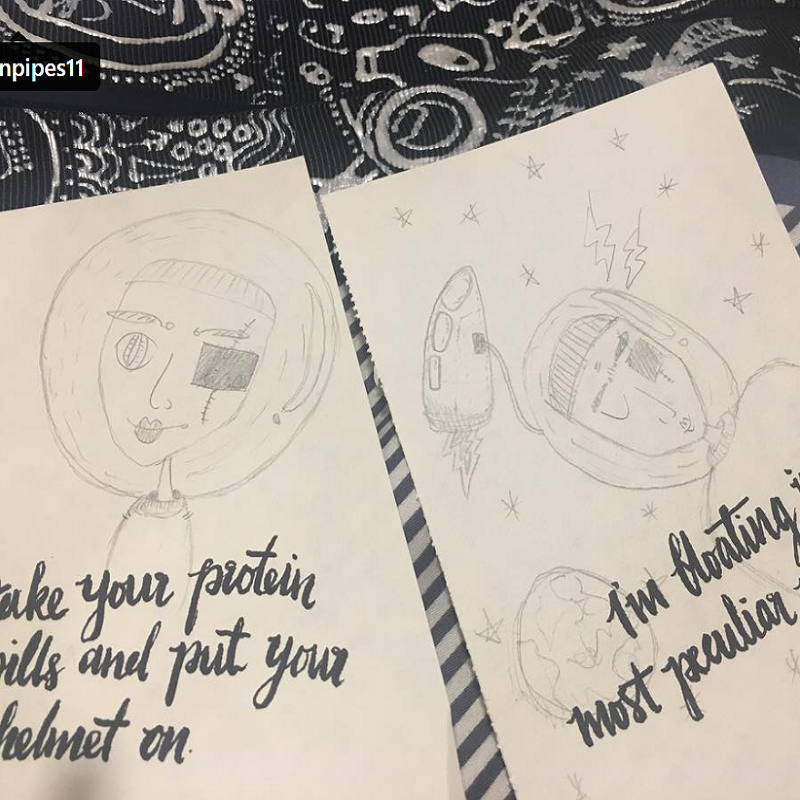 npipes11
take your protein
pills and put your
helmet on.
i'm floating i
most peculiar